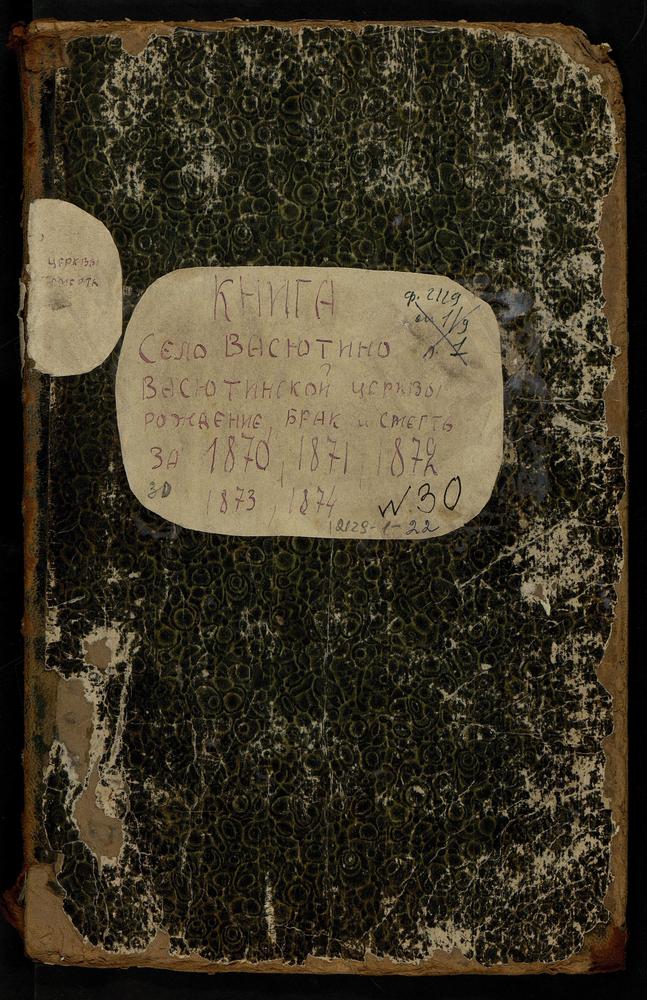 церквы
смерть
КНИГА
ф. 2129
оп 1/9
д. 7
Село Васютино
Васютинской церквы
рождение, брак и смерть
за 1870, 1871, 1872
30
1873, 1874
N 30
2129-1-22